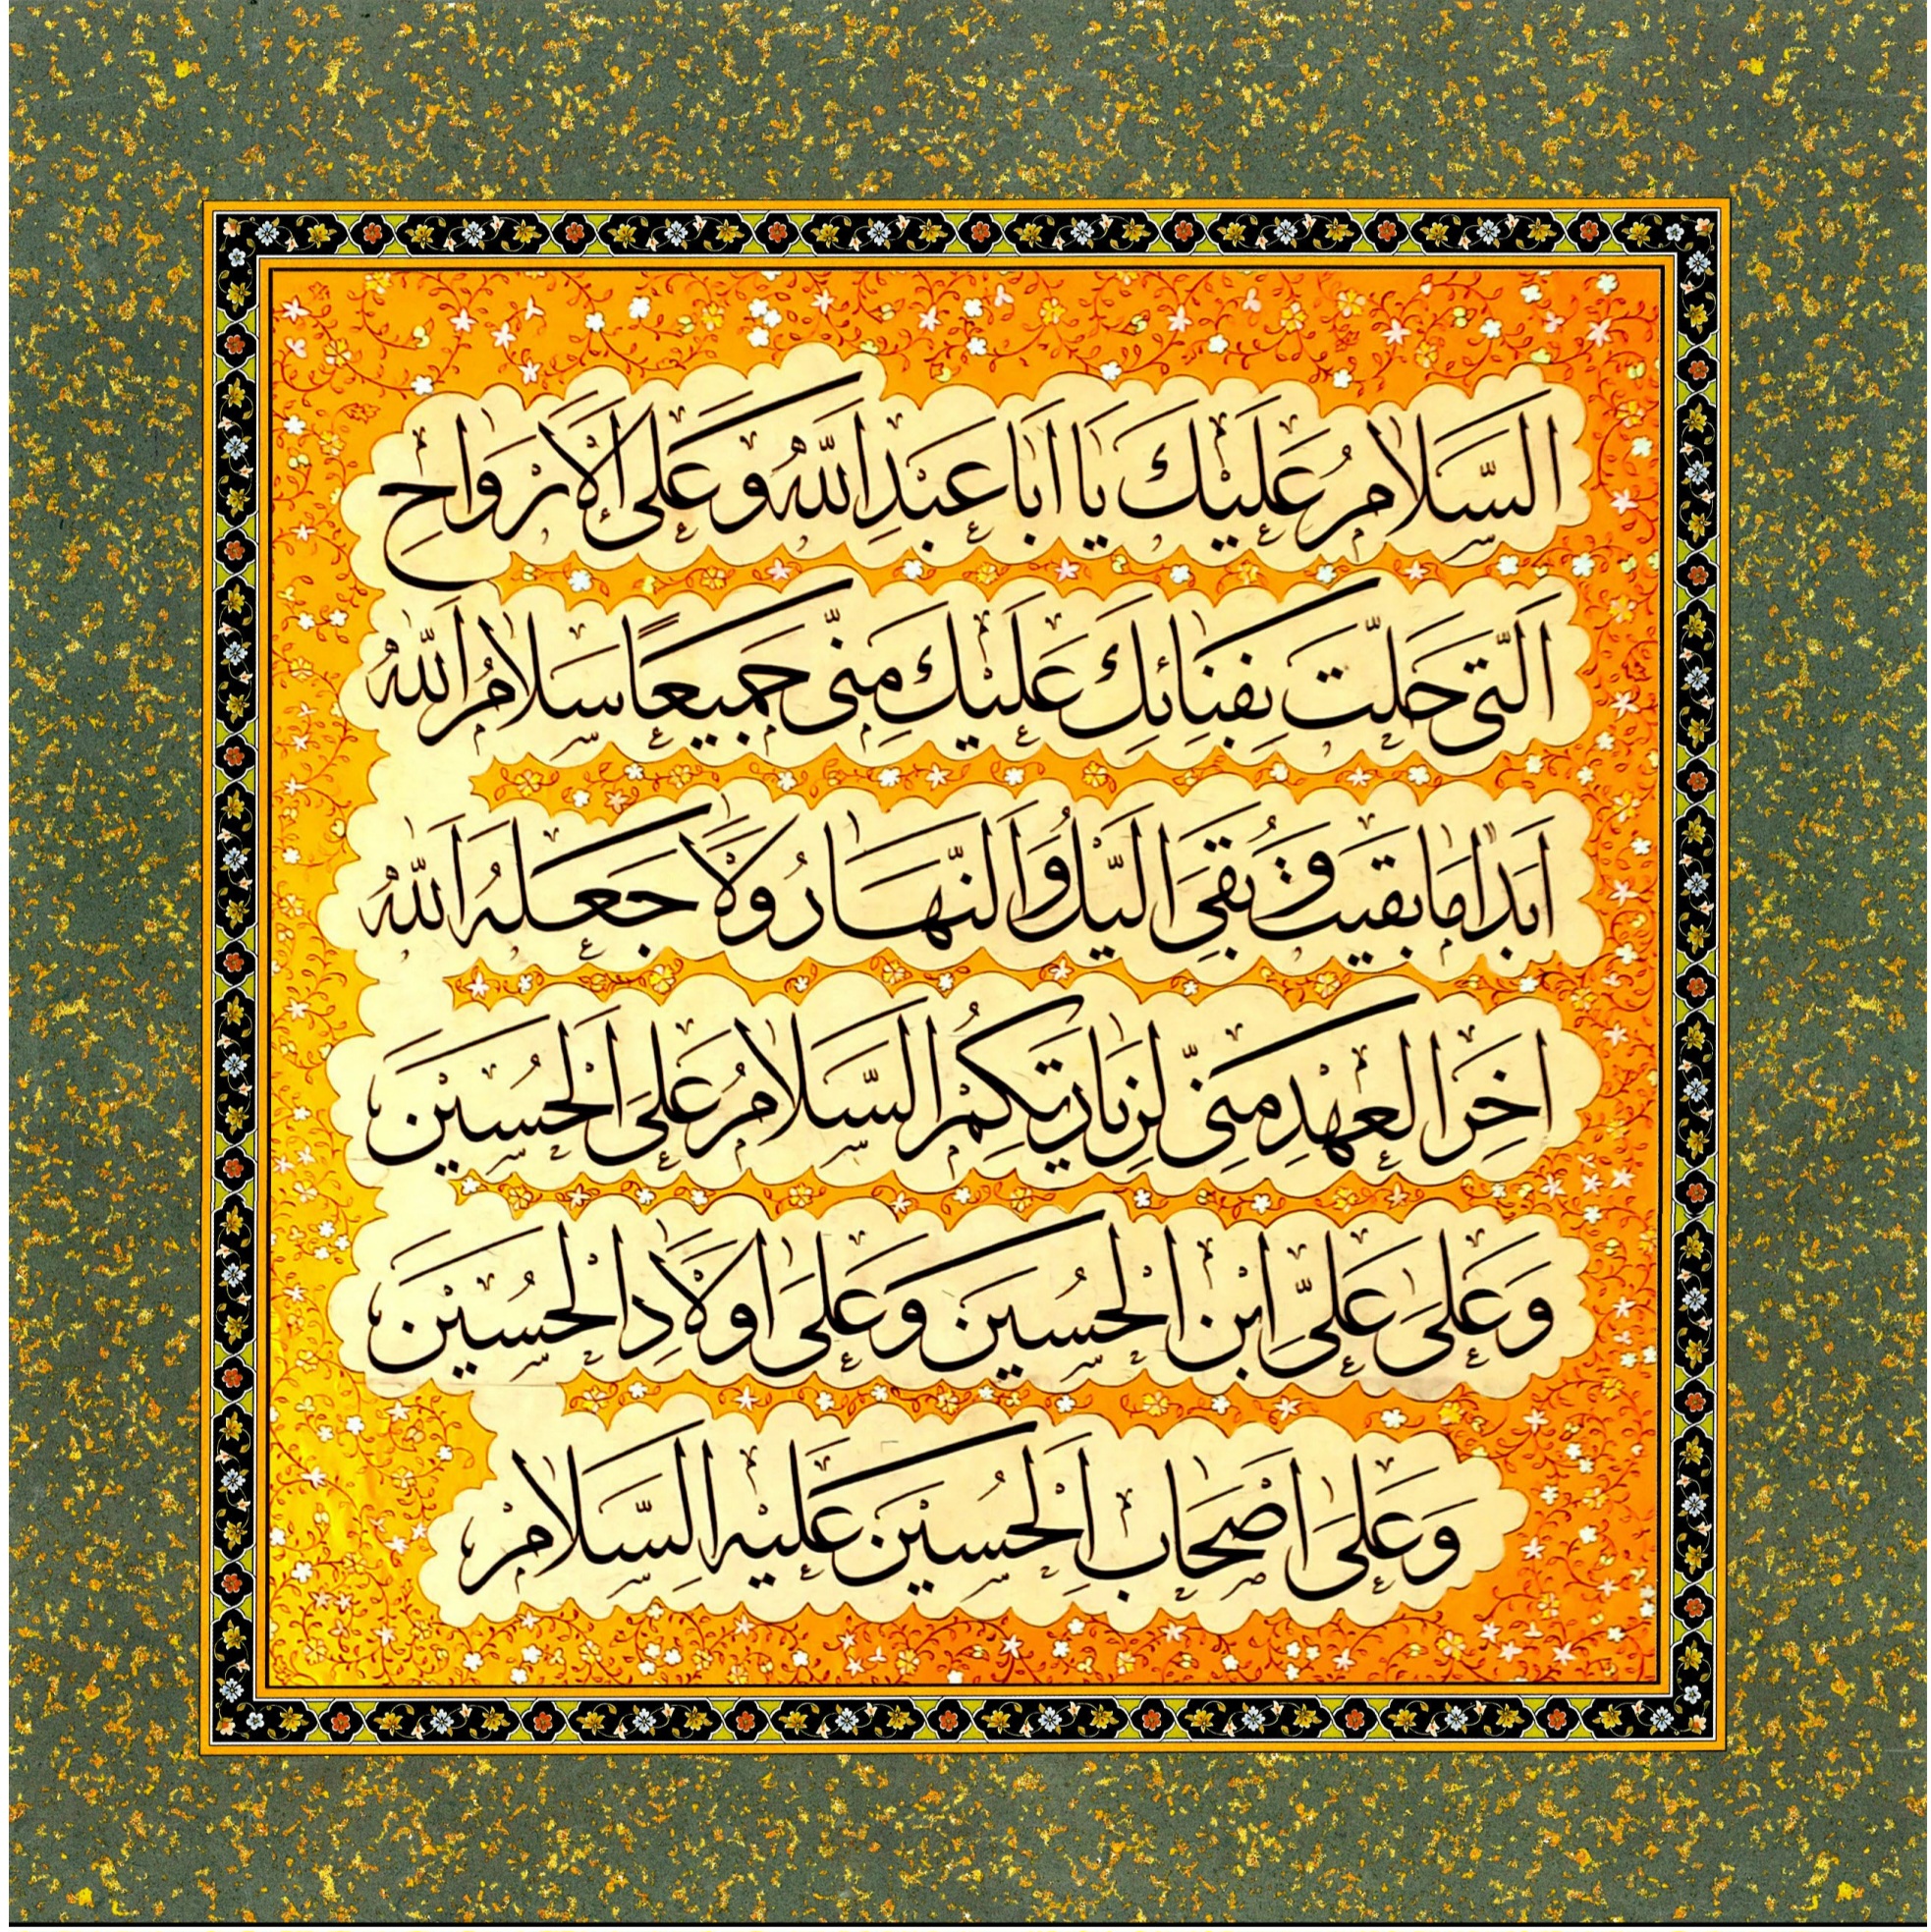 اَلسَّلامُ عَلَیْكَ یا اَبا عَبْدِاللّٰهِ وَعَلَى الْاَرْواحِ
اَلَّتی حَلَّتْ بِفِنائِكَ عَلَیْكَ مِنّی جَمیعًا سَلامُ اللّٰهِ
اَبَدًا ما بَقیتُ وَ بَقِیَ الَّیْلُ وَالنَّهارُ وَلا جَعَلَهُ اللّٰهُ
اخِرَ الْعَهْدِ مِنّی لِزِیارَتِكُمْ السَّلامُ عَلَى الْحُسَیْنِ
وَعَلى عَلِیِّ ابْنِ الْحُسَیْنِ وَعَلى اَوْلادِ الْحُسَیْنِ
وَعَلى اَصْحابِ الْحُسَیْنِ عَلَیْهِ السَّلام